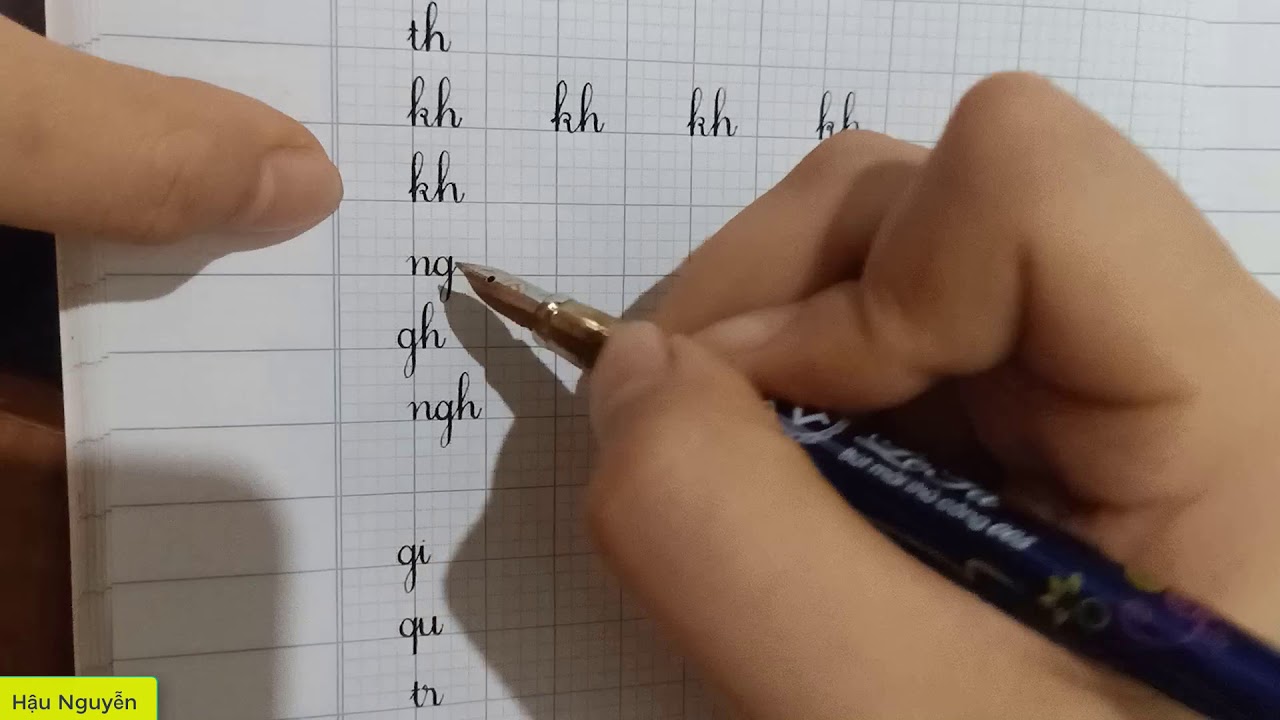 th
kh kh kh kh
kh
ng
gh
ngh
gi
qu
tr
Hậu Nguyễn